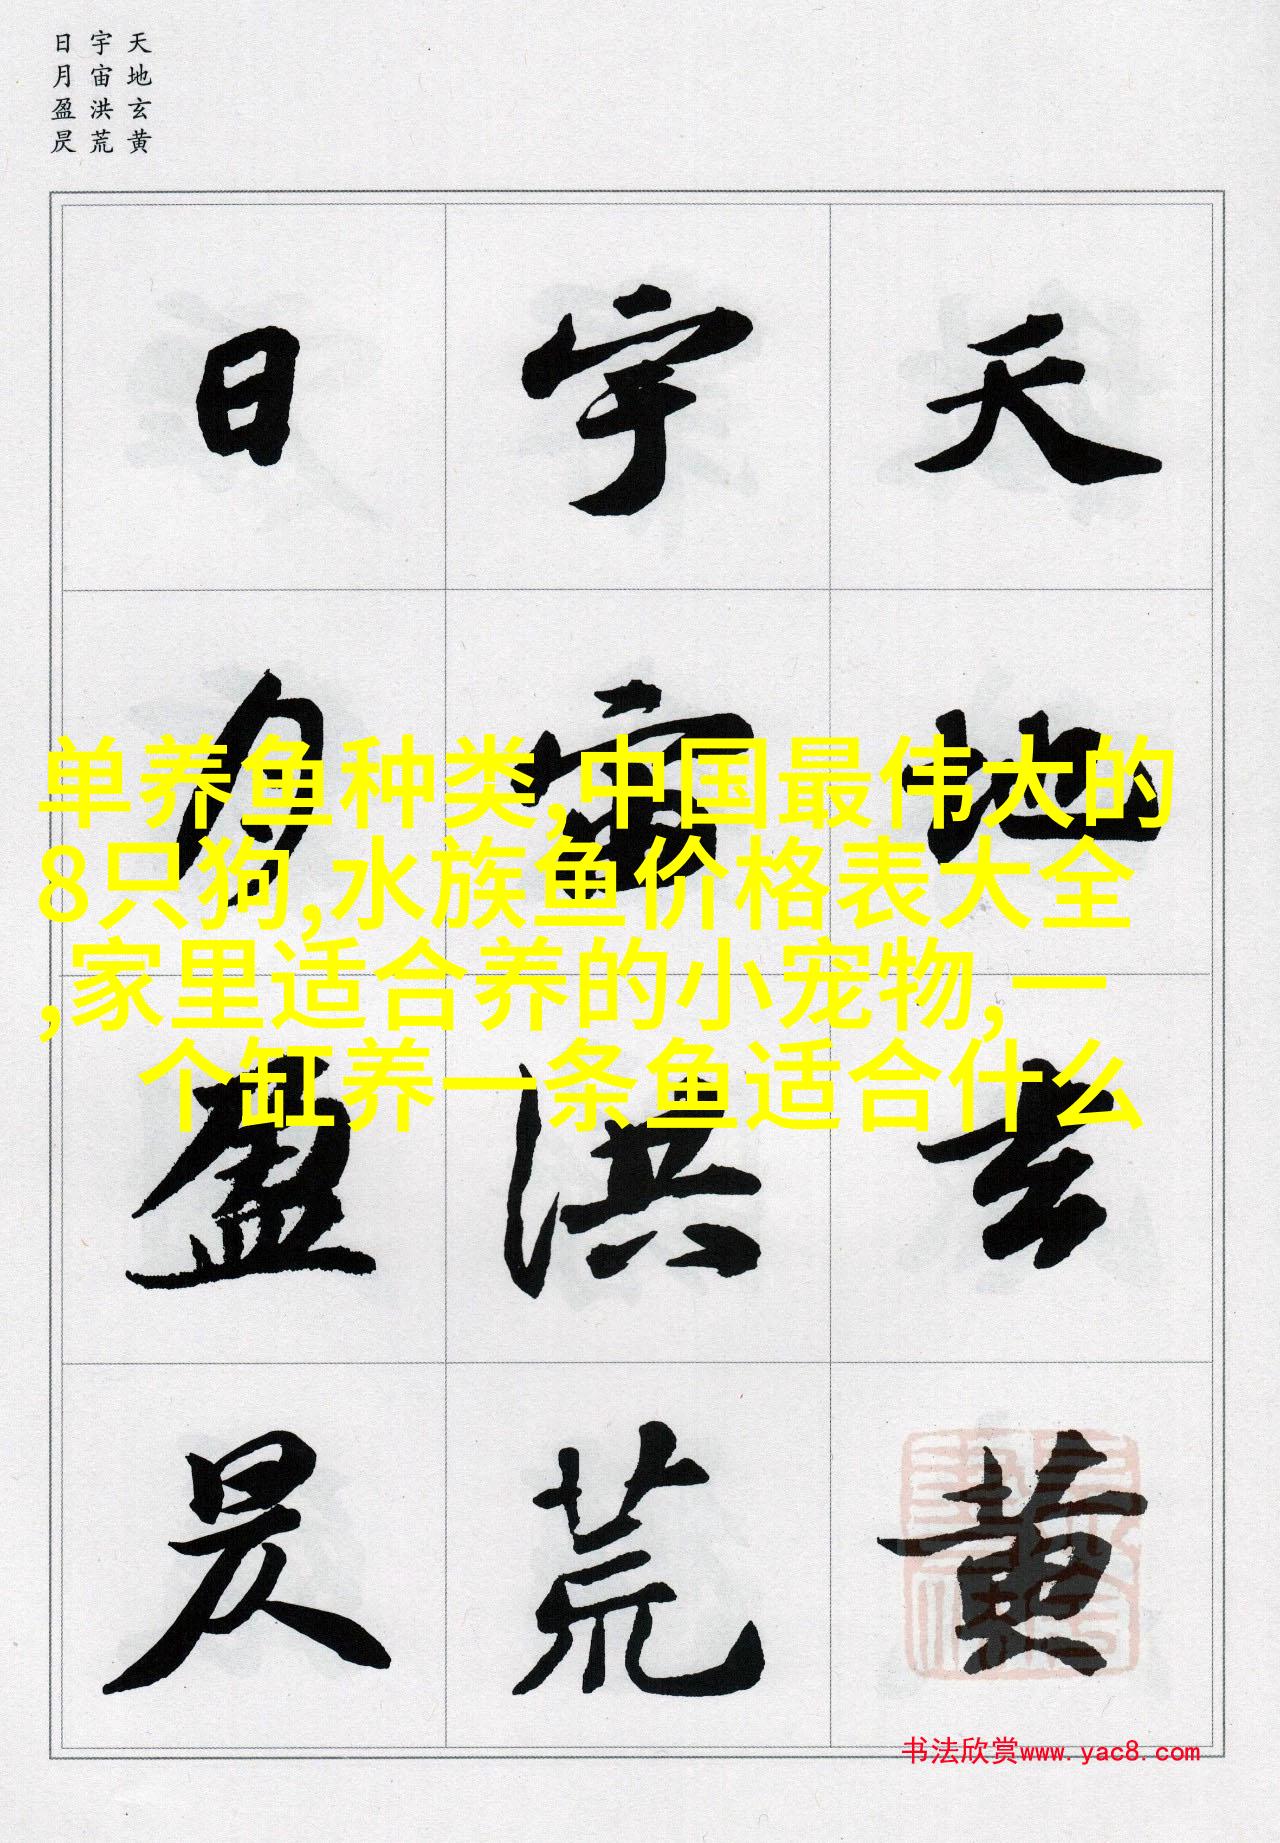 天地玄黄
宇宙洪荒
日月盈昃
天地玄黄
宇宙洪荒
日月盈昃
单养鱼种类,中国最伟大的
8只狗,水族鱼价格表大全
,家里适合养的小宠物,一
个缸养一条鱼适合什么
书法欣赏www.yac8.com